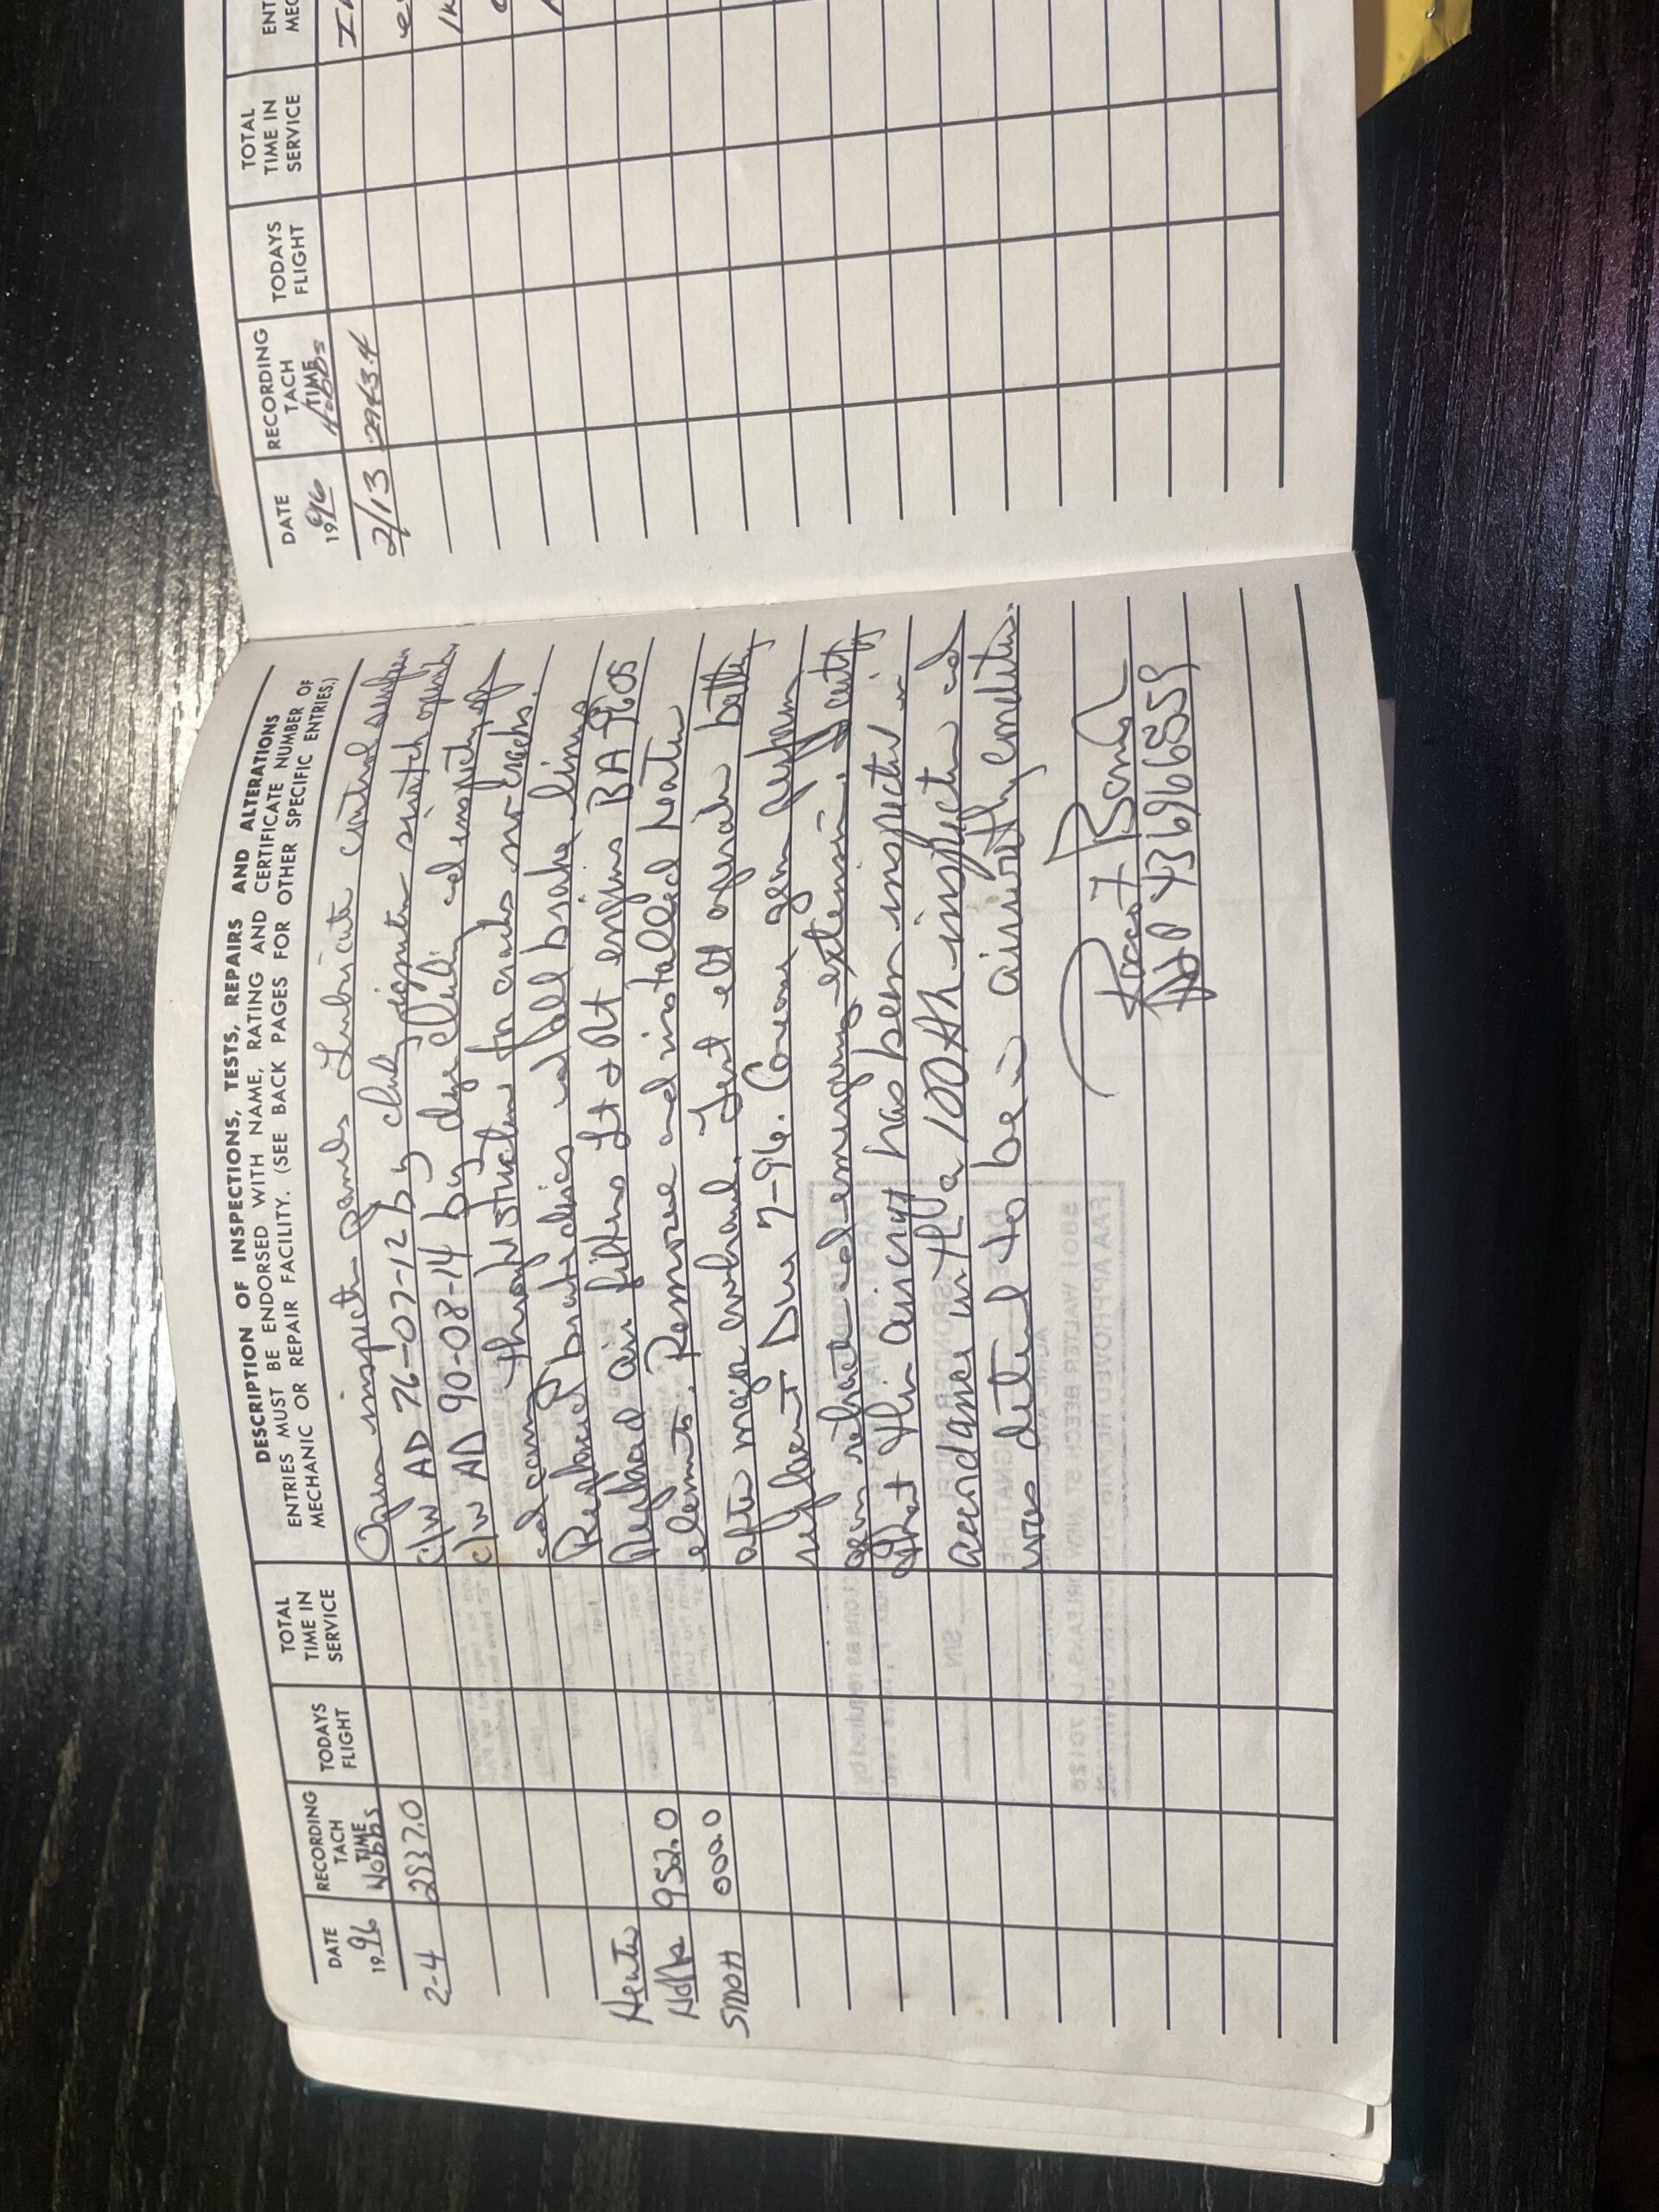 DATE
19 96
RECORDING
TACH
TIME
Hobbs
TODAYS
FLIGHT
TOTAL
TIME IN
SERVICE
DESCRIPTION OF INSPECTIONS, TESTS, REPAIRS AND ALTERATIONS
ENTRIES MUST BE ENDORSED WITH NAME, RATING AND CERTIFICATE NUMBER OF
MECHANIC OR REPAIR FACILITY. (SEE BACK PAGES FOR OTHER SPECIFIC ENTRIES.)
Open inspection panels Lubricate control
2-4 2937.0 c/w AD 76-07-12 by ignition switch
c/w AD 90-08-14 by dye and inspecting
structure for cracks no cracks.
Replaced and brake lining
Heater Replaced air filters Lt & Rt engines BA
Hobbs 952.0 elements. Remove and installed heater
SMOH 000.0 after major overhaul. Test elt operation battery
Due 7-96. gear system
gear retract and emergency extension. I certify
that this aircraft has been inspected in
accordance with a 100 Hr inspection and
was to be in airworthy condition.
A&P 436966559
DATE
19 96
RECORDING
TACH
TIME
Hobbs
TODAYS
FLIGHT
TOTAL
TIME IN
SERVICE
ENT
MEC
2/13 2943.4